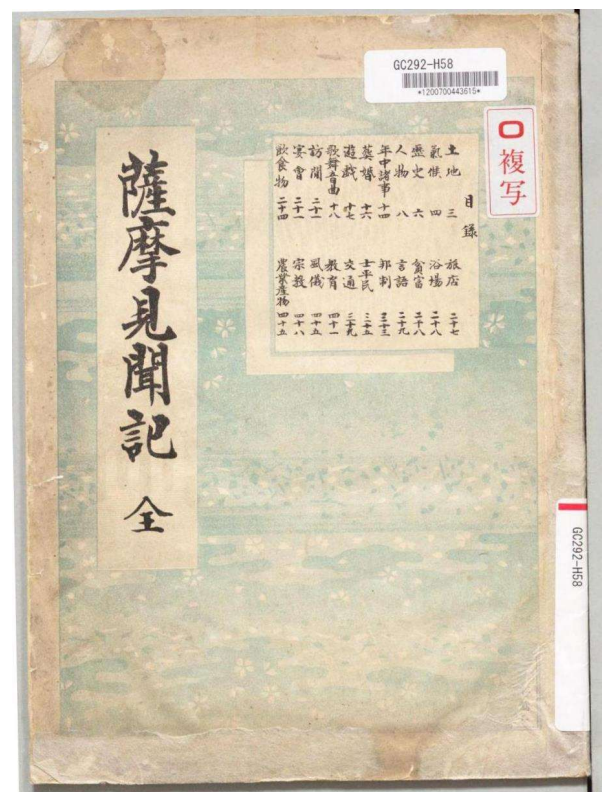 GC292-H58
*1200700443615*
複写
目錄
土地 三
氣候 四
歴史 六
人物 八
年中諸事 十四
葬婚 十六
遊戯 十七
歌舞音曲 十八
訪問 二十一
宴會 二十一
飲食物 二十四
旅店 二十七
浴場 二十八
貧富 二十八
言語 二十九
邦制 三十三
士平民 三十五
交通 三十九
教育 四十一
風儀 四十五
宗教 四十八
農業産物 四十五
薩摩見聞記 全
GC292-H58